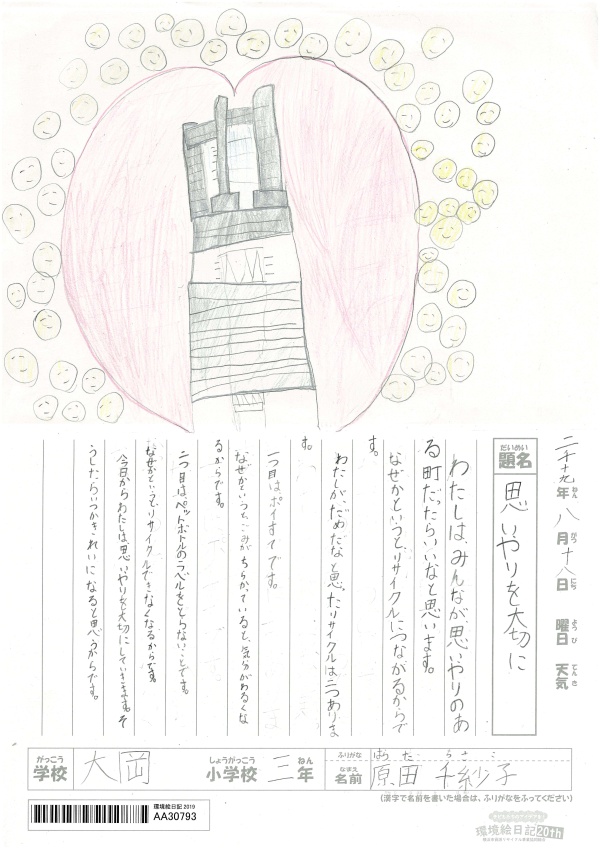 二千十九年八月十八日 曜日 天気
ねん がつ にち ようび てんき
だいめい
題名 思いやりを大切に
わたしは、みんなが思いやりのあ
る町だったらいいなと思います。
なぜかというと、リサイクルにつながるからで
す。
わたしが、だめだなと思ったリサイクルは二つありま
す。
一つ目はポイすてです。
なぜかというと、ごみがちらかっていると、気分がわるくな
るからです。
二つ目は、ペットボトルのラベルをとらないことです。
なぜかというと、リサイクルできなくなるからです。
今日からわたしは、思いやりを大切にしていきます。そ
うしたらいつかきれいになると思うからです。
がっこう しょうがっこう ねん ふりがな
学校 大岡 小学校 三年
なまえ
名前 原田 千紗子
(漢字で名前を書いた場合は、ふりがなをふってください)
環境絵日記 2019
AA30793
環境絵日記20th